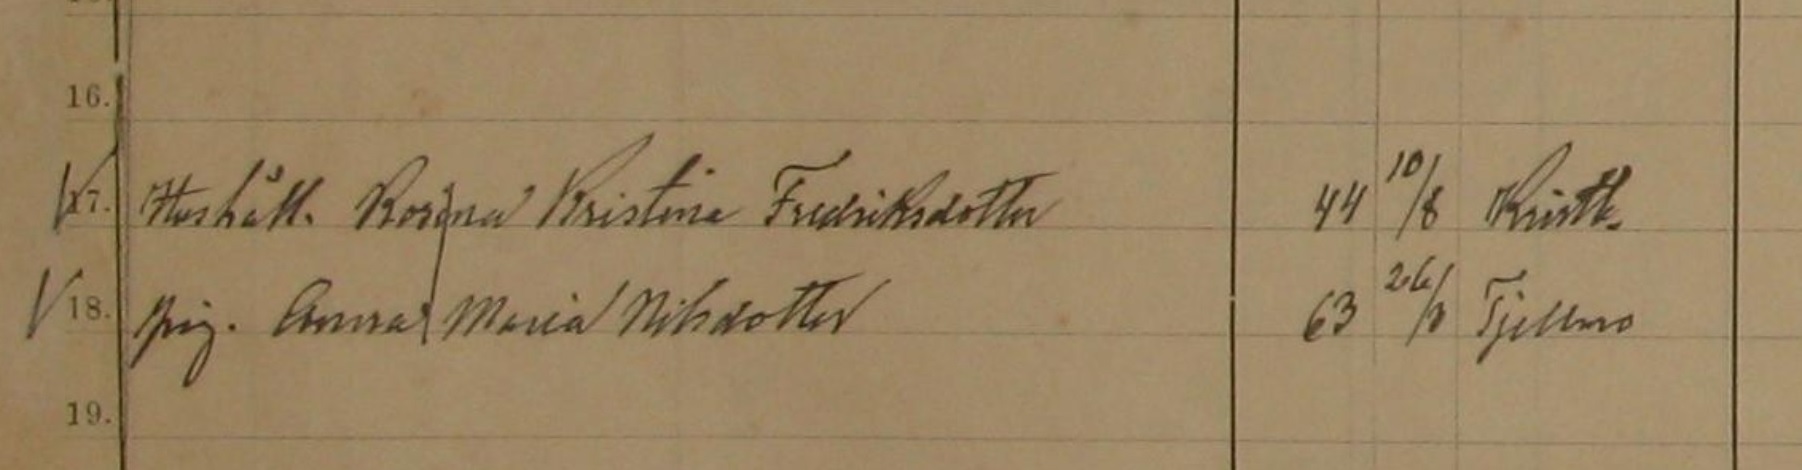 16.
17. Hushåll. Rosina Kristina Fredriksdotter 44 10/8 Kristb.
18. pig. Anna Maria Nilsdotter 63 26/ Tjellmo
19.